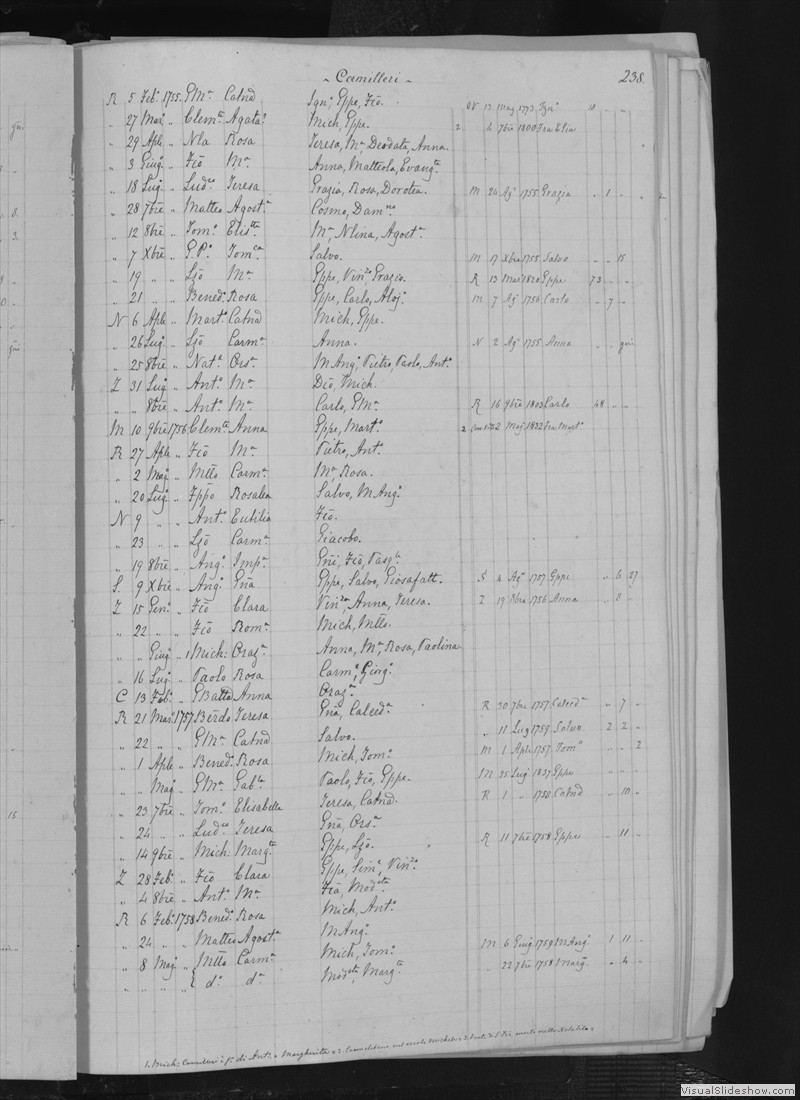 - Camilleri - 238.
R 5 Feb.º 1755. GMª Catnd Ignº, Gppe, Fcō. ON 13 Mag. 1773. Ignº 18 " "
" 27 Mar.º " Clemte Agata. Mich, Gppe. 2 4 7bre 1800 Fra Elia
" 29 Aple " Nla Rosa Teresa, Mª, Deodata, Anna.
" 3 Giugº " Fcō Mª Anna, Matteola, Evangta.
" 18 Lugº " Ludco Teresa Grazia, Rosa, Dorotea. M 24 Agº 1755. Grazia " 1 "
" 28 7bre " Matteo Agostª Cosmo, Damno.
" 12 8bre " Tomº Elistta Mª, Nlina, Agostª
" 7 Xbre " G.Pº Tomca Salvo. M 17 Xbre 1755. Salvo " " 15
" 19 " " Ljō Mª Gppe, Vinzo, Grazio. R 13 Mar. 1820 Gppe 73 " "
" 21 " " Benedº Rosa Gppe, Carlo, Alojº M 7 Agº 1756 Carlo " 7 "
N 6 Aple " Martº Catnd Mich, Gppe.
" 26 Lugº " Ljō Carmª Anna. N 2 Agº 1755 Anna " " gni
" 25 8bre " Natº Orsª M Angº, Pietro, Paolo, Antº
Z 31 Lugº " Antº Mª Dcō, Mich.
" " 8bre " Antº Mª Carlo, GMª R 16 9bre 1803 Carlo 48 " "
M 10 9bre 1756 Clemte Anna Gppe, Martº 2 2 Mag. 1832 Fra Martº
R 27 Aple " Fcō Mª Pietro, Antº
" 2 Magº " Mtto Carmª Mª, Rosa.
" 20 Lugº " Fppo Rosalea Salvo, M Angº
N 9 " " Antº Eutilia Fcō.
" 23 " " Ljō Carmª Giacobo.
" 19 8bre " Angº Impª Gni, Fcō, Pasqle
S. 9 Xbre " Angº Gna Gppe, Salvo, Giosafatt. S 4 Agº 1757 Gppe " 6 27
Z 15 Genº " Fcō Clara Vinza, Anna, Teresa. Z 19 8bre 1756 Anna " 8 "
" 22 " " Fcō Romª Mich, Mtto.
" " Giugº " 1 Mich: Orazª Anna, Mª, Rosa, Paolina
" 16 Lugº " Paolo Rosa Carmº, Girgº
C 13 Febº " GBatta Anna Orazª
R 21 Marº 1757 Berdo Teresa Gna, Calcedª R 30 7bre 1757 Calcedª " 7 "
" 22 " " GMª Catnd Salvo. " 11 Lug 1759 Salvo 2 2 "
" 1 Aple " Benedº Rosa Mich, Tomº M 1 Aple 1757 Tomº " " 2
" " Magº " GMª Gable Paolo, Fcō, Gppe. M 25 Lugº 1837 Gppe " " "
" 23 7bre " Tomº Elisabetta Teresa, Catnd. R 1 " 1758 Catnd " 10 "
" 24 " " Ludco Teresa Gna, Orsª
" 14 9bre " Mich: Margta Gppe, Ljō. R 11 7bre 1758 Gppe " 11 "
Z 28 Febº " Fcō Clara Gppe, Simº, Vinzo
" 4 8bre " Antº Mª Fcā, Modsta
R 6 Febº 1758 Benedº Rosa Mich, Antº
" 24 " " Matteo Agostª M Angº M 6 Giugº 1759 M Angº 1 11 "
" 8 Magº " Mtto Carmª Mich, Tomº " 22 7bre 1758 Margta " 4 "
" " " " dº dª Modsta, Margta
1. Mich: Camilleri è fº di Antº e Margherita